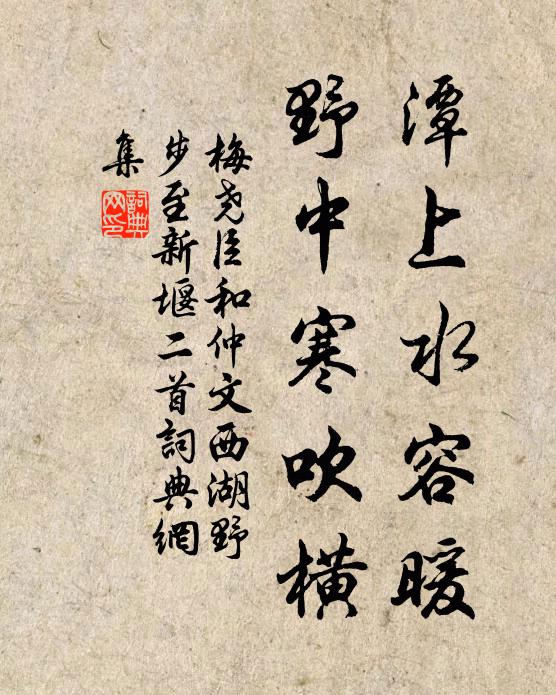 潭上水容暖
野中寒吹橫
梅堯臣和仲文西湖野
步至新堰二首詞典網
集
詞典
网印